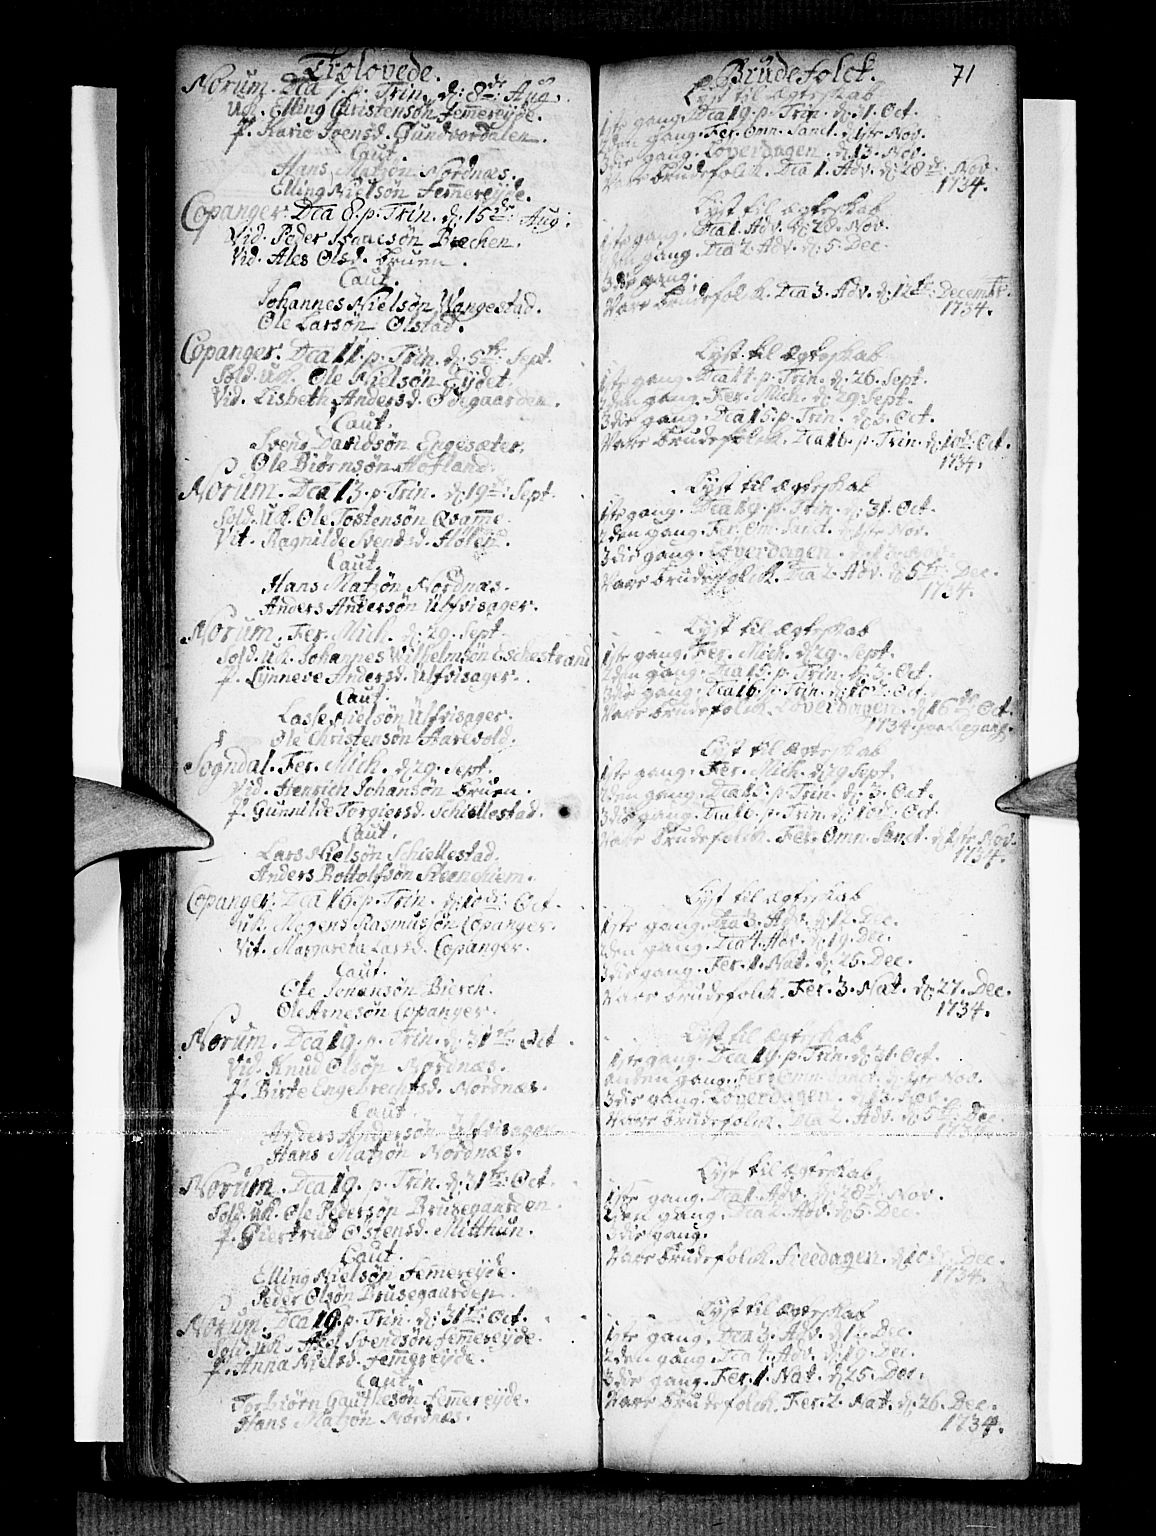 Trolovede.
Norum. Dca 7. p. Trin. d: 8de Aug.
Uk. Elling Christensön Femereyde.
P. Karie Joensd. Gundvordalen.
Caut.
Hans Matzön Nordnæs.
Elling Nielsön Femereyde.
Copanger. Dca 8. p. Trin. d: 15de Aug:
Vid. Peder Isaacsön Bræchen.
Vid. Ales Olsd. Bruen.
Caut.
Johannes Nielsön Wangestad.
Ole Larsön Olstad.
Copanger. Dca 11. p. Trin. d: 5te Sept.
Sold. Uk. Ole Nielsön Eydet.
Vid. Lisbeth Andersd. Ödegaarden.
Caut.
Svend Davidsön Engesæter.
Ole Biörnsön Hofland.
Norum. Dca 13. p. Trin. d: 19de Sept.
Sold. Uk. Ole Tostensön Qvamme.
Vit. Ragnilde Svendsd. Hölen.
Caut.
Hans Matzön Nordnæs.
Anders Andersön Ulfvisager.
Norum. Fer. Mich. d: 29. Sept.
Sold. Uk. Johannes Wilhelmsön Eschestrand
P. Lynneve Andersd. Ulfvisager.
Caut.
Lasse Nielsön Ulfvisager.
Ole Christensön Aarevold.
Sogndal. Fer. Mich. d: 29. Sept.
Vid. Henrich Johansön Bruen.
P. Gunnilde Torgiersd. Schiellestad.
Caut.
Lars Nielsön Schiellestad.
Anders Bottolfsön Steenehiem.
Copanger. Dca 16. p. Trin. d: 10de Oct.
Uk. Mogens Rasmussön Copanger.
Vit. Margareta Larsd. Copanger.
Caut.
Ole Jonansön Bierch.
Ole Arnesön Copanger.
Norum. Dca 19. p. Trin. d: 31te Oct.
Vid. Knud Olsön Nordnæs.
P. Birte Engebrechtsd. Nordnæs.
Caut.
Anders Andersön Ulfvisager.
Hans Matzön Nordnæs.
Norum. Dca 19. p. Trin. d: 31te Oct.
Sold. Uk. Ole Pedersön Brusegaarden.
P. Giertrud Ostensd. Mitthun.
Caut.
Elling Nielsön Femereyde.
Peder Olsön Brusegaarden.
Norum. Dca 19. p. Trin. d: 31te Oct.
Sold. Uk. Svendsön Femereyde.
P. Anna Nielsd. Femereyde.
Caut.
Torbiörn Gauthesön Femereyde.
Hans Matzön Nordnæs.
Brudefolck. 71
Lyst til Ægteskab
1ste gang. Dca 19. p. Trin. d: 31. Oct.
2den gang. Fer. Omn. Sanct. d: 1ste Nov.
3die gang. Löverdagen. d: 13. Nov.
Vare brudefolck. Dca 1. Adv. d: 28de Nov.
1734.
Lyst til Ægteskab
1ste gang. Dca 1. Adv. d: 28. Nov.
2den gang. Dca 2. Adv. d: 5. Dec.
3die gang.
Vare brudefolck. Dca 3. Adv. d: 12te Decembr.
1734.
Lyst til Ægteskab
1ste gang. Dca 14. p. Trin. d: 26. Sept.
2den gang. Fer. Mich. d: 29. Sept.
3die gang. Dca 15. p. Trin. d: 3. Oct.
Vare brudefolck. Dca 16. p. Trin. d: 10de Oct.
1734.
Lyst til Ægteskab
1ste gang. Dca 19. p. Trin. d: 31. Oct.
2den gang. Fer. Om. Sanct. d: 1ste Nov.
3die gang. Löverdagen. d: 13. Nov.
Vare brudefolck. Dca 2. Adv. d: 5te Dec.
1734.
Lyst til Ægteskab
1ste gang. Fer. Mich. d: 29. Sept.
2den gang. Dca 15. p. Trin. d: 3. Oct.
3die gang. Dca 16. p. Trin. d: 10de Oct.
Vare brudefolck. Löverdagen. d: 16de Oct.
1734.
Lyst til Ægteskab
1ste gang. Fer. Mich. d: 29 Sept.
2den gang. Dca 15. p. Trin. d: 3. Oct.
3die gang. Dca 16. p. Trin. d: 10de Oct.
Vare brudefolck. Fer. Omn. Sanct. d: 1ste Nov.
1734.
Lyst til Ægteskab
1ste gang. Dca 3. Adv. d: 12. Dec.
2den gang. Dca 4. Adv. d: 19. Dec.
3die gang. Fer. 1. Nat. d: 25. Dec.
Vare brudefolck. Fer. 3. Nat. d: 27. Dec.
1734.
Lyst til Ægteskab
1ste gang. Dca 19. p. Trin. d: 31. Oct.
anden gang. Fer. Omn. Sanct. d: 1ste Nov.
3die gang. Löverdagen. d: 13. Nov.
Vare brudefolck. Dca 2. Adv. d: 5te Dec.
1734.
Lyst til Ægteskab
1ste gang. Dca 1. Adv. d: 28de Nov.
2den gang. Dca 2. Adv. d: 5. Dec.
3die gang.
Vare brudefolck. Freedagen. d: 10. Dec.
1734.
Lyst til Ægteskab
1ste gang. Dca 3. Adv. d: 12. Dec.
2den gang. Dca 4. Adv. d: 19. Dec.
3die gang. Fer. 1. Nat. d: 25. Dec.
Vare brudefolck. Fer. 2. Nat. d: 26. Dec.
1734.